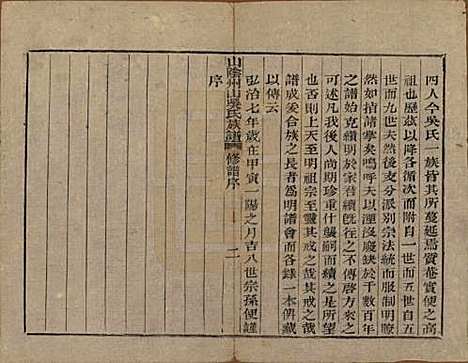 四人今吳氏一族皆其所蔓延焉質菴實便之高
祖也歷玆以降各循次而附自一世而五世自五
世而九世夫然後支分派別宗法統而服制明世
然如指諸掌矣嗚呼天以湮沒廢缺于千數百年
之譜始克續明於家菩續旣往之不可追詔將來之
可述凡我後人尚期珍重什襲嗣而續之是所望
也否則上天至明祖宗至靈其戒之哉其戒之哉
譜成爰合族之長者爲明譜會而各錄一本俾藏
以傳云
弘治七年歲在甲寅一陽之月吉八世宗孫便謹
序
山陰州山吳氏族譜 修譜序 二